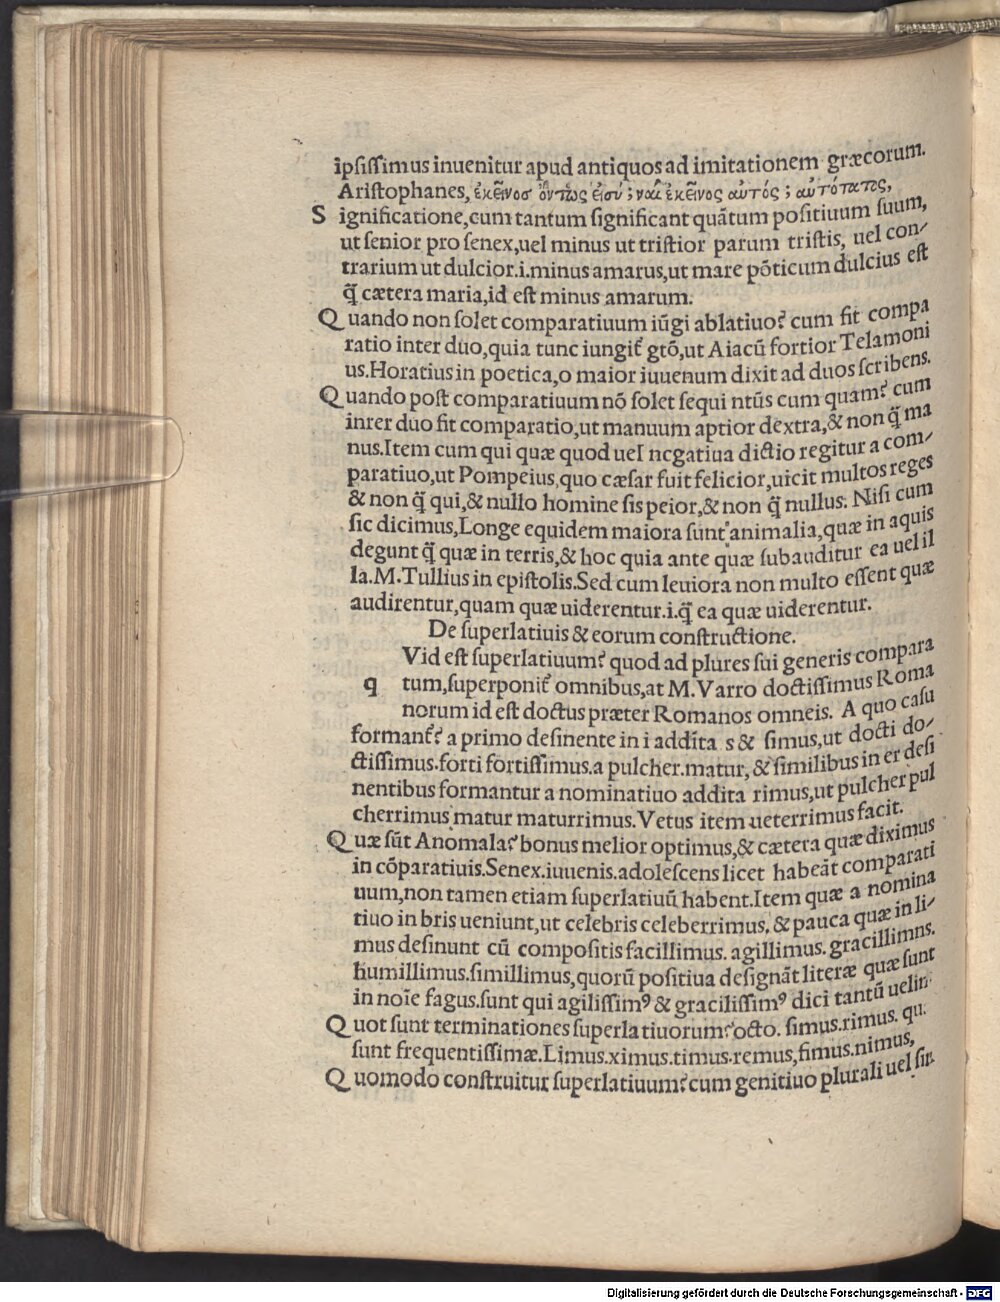 ipsissimus inuenitur apud antiquos ad imitationem græcorum.
Aristophanes, ἐκεῖνοσ ὄντως ἐισύ; ναὶ ἐκεῖνος αὐτός; αὐτότατος,
S ignificatione,cum tantum significant quãtum positiuum suum,
ut senior pro senex,uel minus ut tristior parum tristis, uel con-
trarium ut dulcior.i.minus amarus,ut mare põticum dulcius est
q̃ cætera maria,id est minus amarum.
Q uando non solet comparatiuum iũgi ablatiuo? cum fit compa
ratio inter duo,quia tunc iungit᷑ gtõ,ut Aiacũ fortior Telamoni
us.Horatius in poetica,o maior iuuenum dixit ad duos scribens.
Q uando post comparatiuum nõ solet sequi ntũs cum quam? cum
inrer duo fit comparatio,ut manuum aptior dextra,& non q̃ ma
nus.Item cum qui quæ quod uel negatiua dictio regitur a com-
paratiuo,ut Pompeius,quo cæsar fuit felicior,uicit multos reges
& non q̃ qui,& nullo homine sis peior,& non q̃ nullus. Nisi cum
sic dicimus,Longe equidem maiora sunt animalia,quæ in aquis
degunt q̃ quæ in terris,& hoc quia ante quæ subauditur ea uel il
la.M.Tullius in epistolis.Sed cum leuiora non multo essent quæ
audirentur,quam quæ uiderentur.i.q̃ ea quæ uiderentur.
De superlatiuis & eorum constructione.
Vid est superlatiuum? quod ad plures sui generis compara
q tum,superponit᷑ omnibus,at M.Varro doctissimus Roma
norum id est doctus præter Romanos omneis. A quo casu
formant᷑? a primo desinente in i addita s & simus,ut docti do-
ctissimus.forti fortissimus.a pulcher.matur,& similibus in er desi
nentibus formantur a nominatiuo addita rimus,ut pulcher pul
cherrimus matur maturrimus.Vetus item ueterrimus facit.
Q uæ sũt Anomala? bonus melior optimus,& cætera quæ diximus
in cõparatiuis.Senex.iuuenis.adolescens licet habeãt comparati
uum,non tamen etiam superlatiuũ habent.Item quæ a nomina
tiuo in bris ueniunt,ut celebris celeberrimus. & pauca quæ in li-
mus desinunt cũ compositis facillimus. agillimus. gracillimns.
humillimus.simillimus,quorũ positiua designãt literæ quæ sunt
in noĩe fagus.sunt qui agilissimꝰ & gracilissimꝰ dici tantũ uelin
Q uot sunt terminationes superlatiuorum? octo. simus.rimus. qu.
sunt frequentissimæ.Limus.ximus.timus.remus,fimus.nimus,
Q uomodo construitur superlatiuum? cum genitiuo plurali uel sin
Digitalisierung gefördert durch die Deutsche Forschungsgemeinschaft - DFG